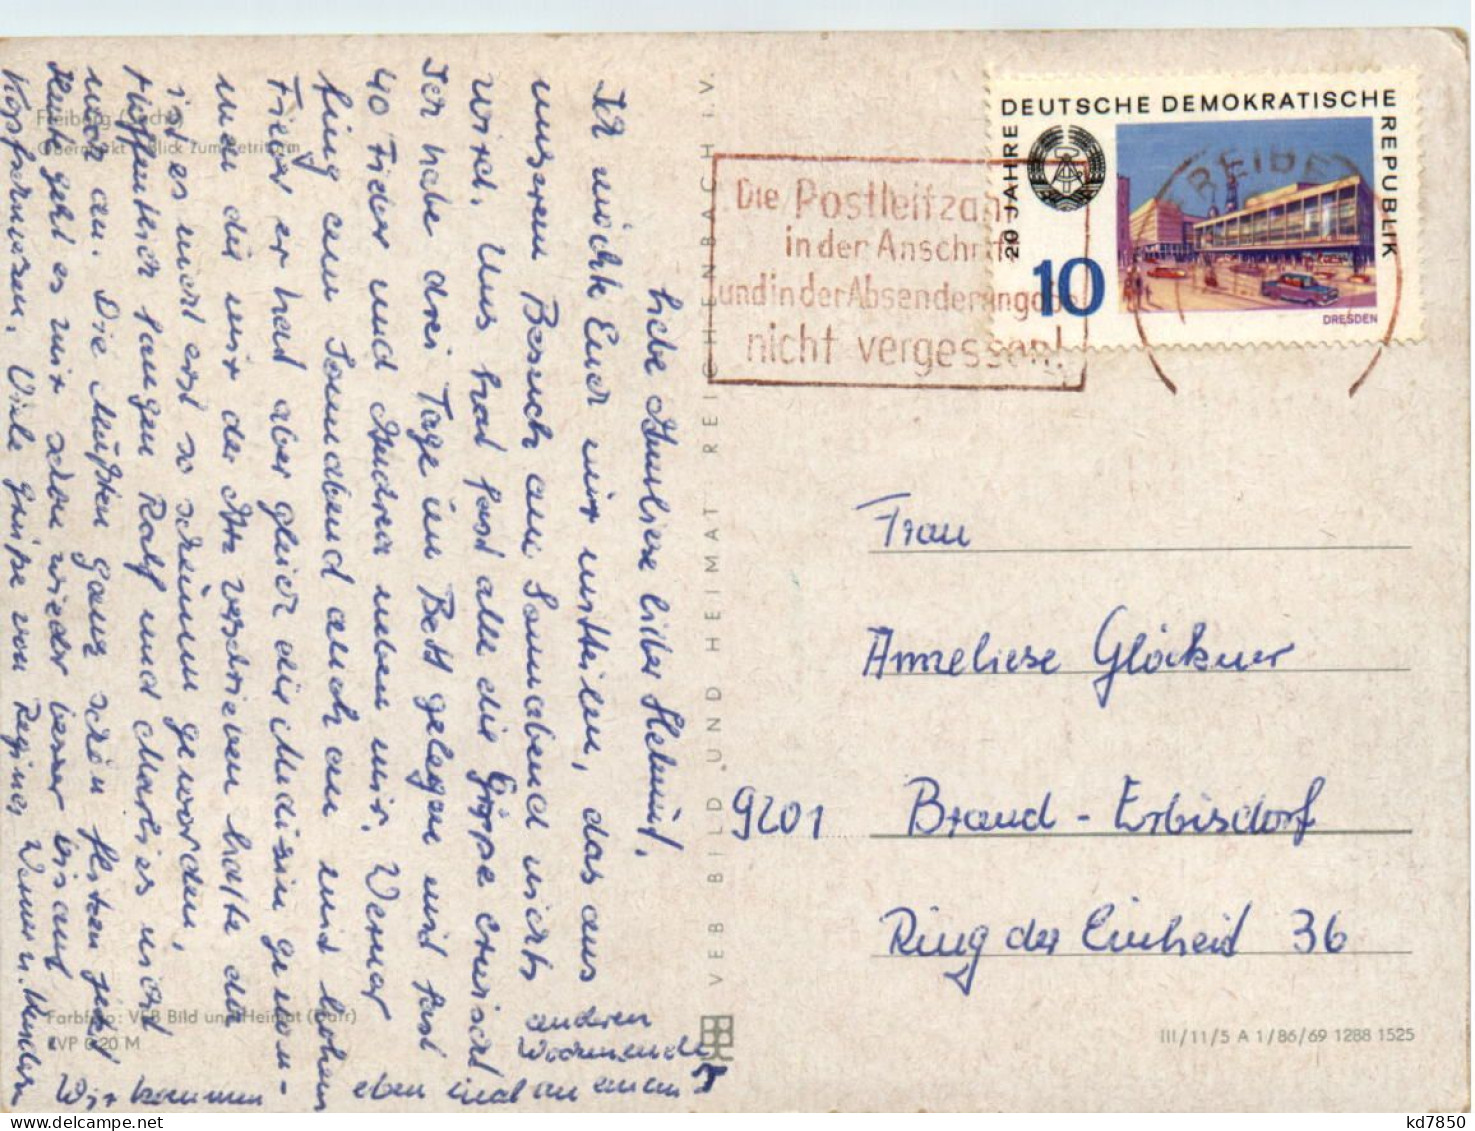 Freiberg (Sachs)
Obermarkt Blick zum Petriturm
Liebe Anneliese lieber Helmut,
Ich möchte Euch nur mitteilen, das aus
unserem Besuch am Sonnabend nichts
wird. Uns hat fast alle die Grippe erwischt
Ich habe drei Tage im Bett gelegen mit fast
40 Fieber und Andrea neben mir. Werner
fing am Sonnabend auch an mit hohem
Fieber er hat aber gleich die Medizin genom-
men die mir der Arzt verschrieben hatte da
ist es nicht erst so schlimm geworden.
Hoffentlich fangen Ralf und Marlies nicht
noch an. Die Mußten ganz schön
Heute geht es mir schon wieder besser bis auf
Kopfschmerzen. Viele Grüße von Regina, Werner u. Kindern
Wir kommen eben mal an einem
anderen
Wochenende
Farbfoto: VEB Bild und Heimat (Darr)
EVP 0,20 M
VEB BILD UND HEIMAT REICHENBACH I.V.
Die Postleitzahl
in der Anschrift
und in der Absenderangabe
nicht vergessen!
DEUTSCHE DEMOKRATISCHE
REPUBLIK
20 JAHRE
10
DRESDEN
Frau
Anneliese Glöckner
9201 Brand - Erbisdorf
Ring der Einheit 36
III/11/5 A 1/86/69 1288 1525
kd7850